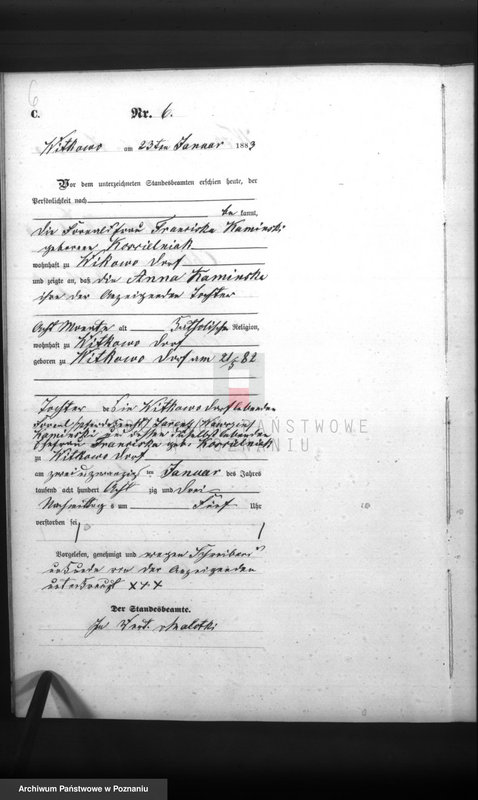 6
C. Nr. 6.
Witkowo am 23ten Januar 1883
Vor dem unterzeichneten Standesbeamten erschien heute, der
Persönlichkeit nach
be kannt,
die Fornalsfrau Franciska Kaminski
geborene Koscielniak
wohnhaft zu Witkowo Dorf
und zeigte an, daß die Anna Kaminska
ihre der Anzeigenden Tochter
Acht Monate alt Katholischer Religion,
wohnhaft zu Witkowo Dorf
geboren zu Witkowo Dorf am 21/5 82
Tochter des in Witkowo Dorf lebenden
Fornal
Kaminski und dessen daselbst lebenden
Ehefrau Franciska geb. Koscielniak
zu Witkowo Dorf
am zweiundzwanzig ten Januar des Jahres
tausend acht hundert Acht zig und drei
Nachmittags um Fünf Uhr
verstorben sei
Vorgelesen, genehmigt und wegen Schreibens
unkunde von der Anzeigenden
unterkreuzt +++
Der Standesbeamte.
In Vert. Malotki
ARCHIWUM PAŃSTWOWE
W POZNANIU
Archiwum Państwowe w Poznaniu